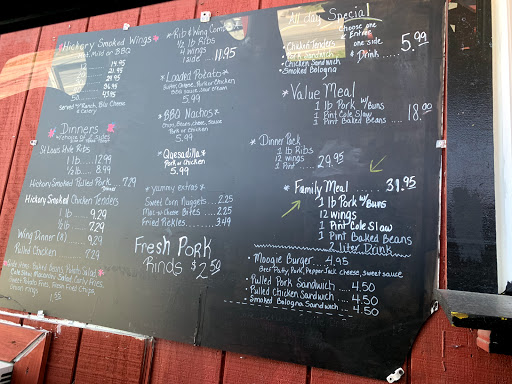 Hickory Smoked Wings
Hot, Mild or BBQ
14.95
21.95
28.95
36.95
50 43.95
served w/ Ranch, Bleu Cheese
& Celery
Dinners
St Louis Style Ribs
1 lb ..... 12.99
1/2 lb ..... 8.99
Hickory Smoked Pulled Pork 7.29
Hickory Smoked Chicken Tenders
1 lb ..... 9.29
1/2 lb ..... 7.29
Wing Dinner (8) ..... 9.29
Pulled Chicken ..... 7.29
Baked Beans, Potato Salad,
Cole Slaw, Macaroni Salad, Curly Fries,
Sweet Potato Fries, Fresh Fried Chips,
Onion Rings
1.85
*Rib & Wing Combo*
1/2 lb Ribs
4 wings
1 side .... 11.95
*Loaded Potato*
Butter, Cheese, Pork or Chicken
BBQ Sauce, Sour Cream
5.99
*BBQ Nachos*
Beans, Cheese, Sauce
Pork or Chicken
5.99
*Quesadilla*
Pork or Chicken
5.99
*yummy extras*
Sweet Corn Nuggets .... 2.25
Mac-n-Cheese Bites .... 2.25
Fried Pickles ..... 3.49
Fresh Pork
Rinds $2.50
All day Special
Choose one
Entree
one side
& Drink ..... 5.99
• Chicken Tenders
• Pork Sandwich
• Chicken Sandwich
• Smoked Bologna
*Value Meal
1 lb Pork w/ Buns
1 Pint Cole Slaw
1 Pint Baked Beans .... 18.00
* Dinner Pack
1 lb Ribs
12 wings
1 Pint .... 29.95
* Family Meal ..... 31.95
1 lb Pork w/ Buns
12 wings
1 Pint Cole Slaw
1 Pint Baked Beans
2 liter Drink
• Moogie Burger .... 4.95
Beef Patty, Pork, Pepper Jack cheese, sweet sauce
• Pulled Pork Sandwich .... 4.50
• Pulled Chicken Sandwich .... 4.50
• Smoked Bologna Sandwich ... 4.50